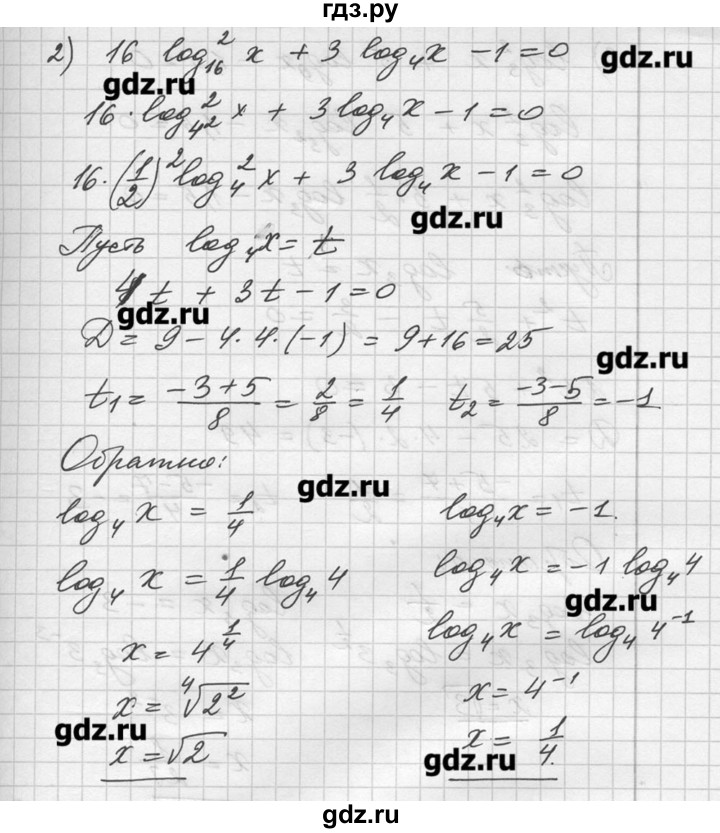 гдз.ру
2) 16 log₁₆² x + 3 log₄x − 1 = 0
gdz.ru gdz.ru
16 · log²₄² x + 3 log₄ x − 1 = 0
16 · (1/2)² log₄² x + 3 log₄ x − 1 = 0
gdz.ru
Пусть log₄x = t
4t + 3t − 1 = 0
gdz.ru
D = 9 − 4 · 4 · (−1) = 9 + 16 = 25
gdz.ru
t₁ = (−3+5)/8 = 2/8 = 1/4 t₂ = (−3−5)/8 = −1
Обратно:
gdz.ru
log₄ x = 1/4 log₄x = −1.
log₄ x = 1/4 log₄ 4 log₄x = −1 log₄4
gdz.ru
x = 4^(1/4) log₄x = log₄ 4⁻¹
x = ⁴√2² x = 4⁻¹
gdz.ru
x = √2 x = 1/4.
gdz.ru
gdz.ru